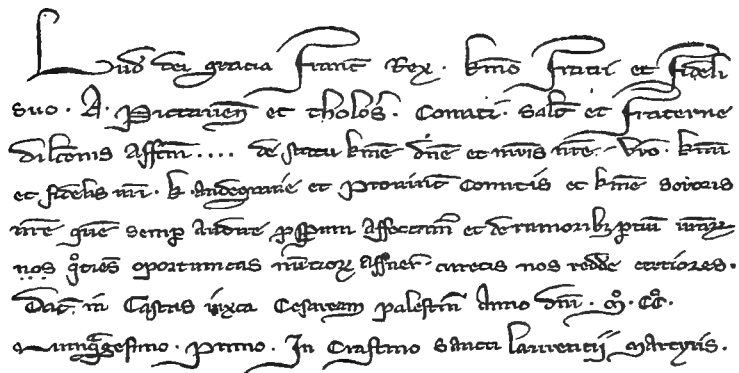 Lud̄ dei gracia Franc̄ Rex. km̄o Fratri et fideli
suo. A. Pictaven̄ et tholos̄. Comiti. salt̄ et fraterne
dilc̄onis affm̄.... de statu km̄e dn̄e et mr̄is nr̄e. vr̄o. km̄i
et fidelis nr̄i. k. andegavie et Provinc̄ Comitis et km̄e sororis
nr̄e quē semp audire psp̄um affectam̄ et de rumorib; partiū vr̄aꝝ
nos qo̊ties oportunitas nūcioꝝ affuer̄. curetis nos redde certiores.
Dat̄. in Castris iuxta Cesaream palestin̄ Anno dn̄i. m̊. cc̊.
quinqagesimo. primo. In Crastino sancti laurentii martyris.